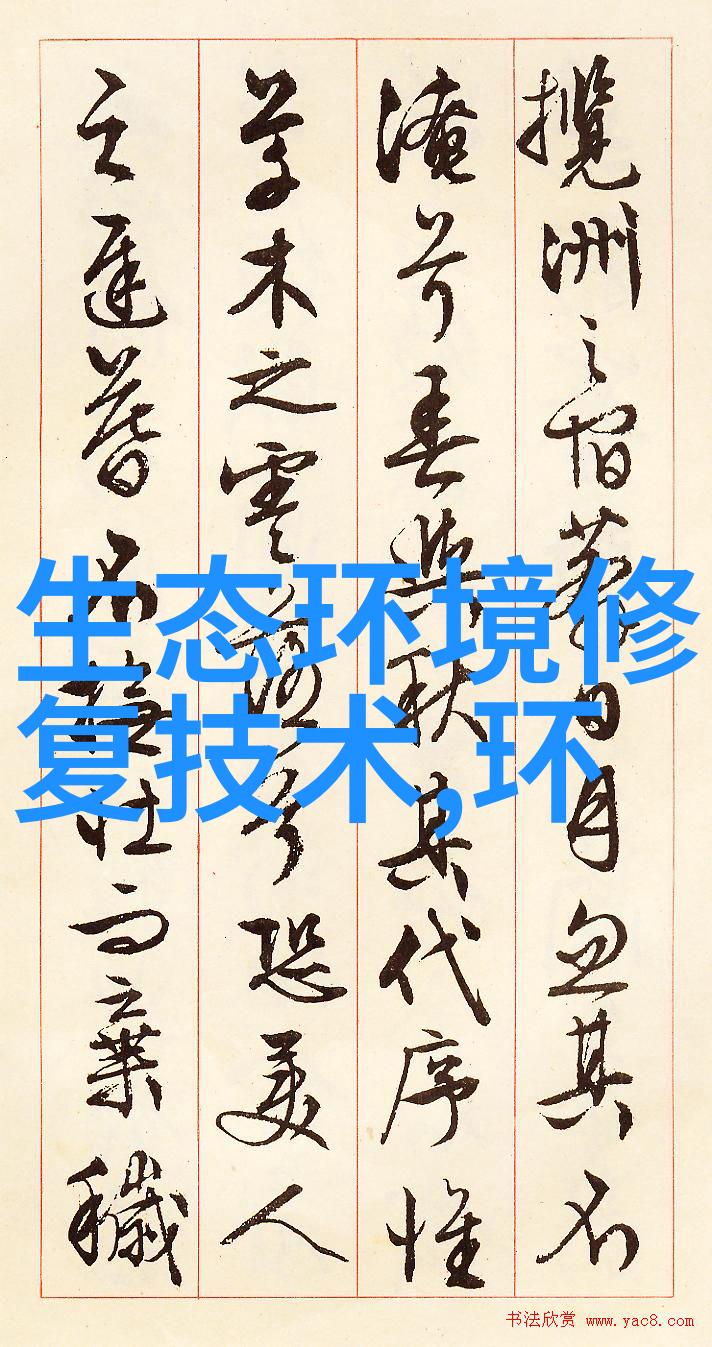 攬洲之宿莽日月忽其不
淹兮春與秋其代序惟
草木之零落兮恐美人
之遲暮不撫壯而棄穢
生态环境修
复技术,环
书法欣赏 www.yac8.com